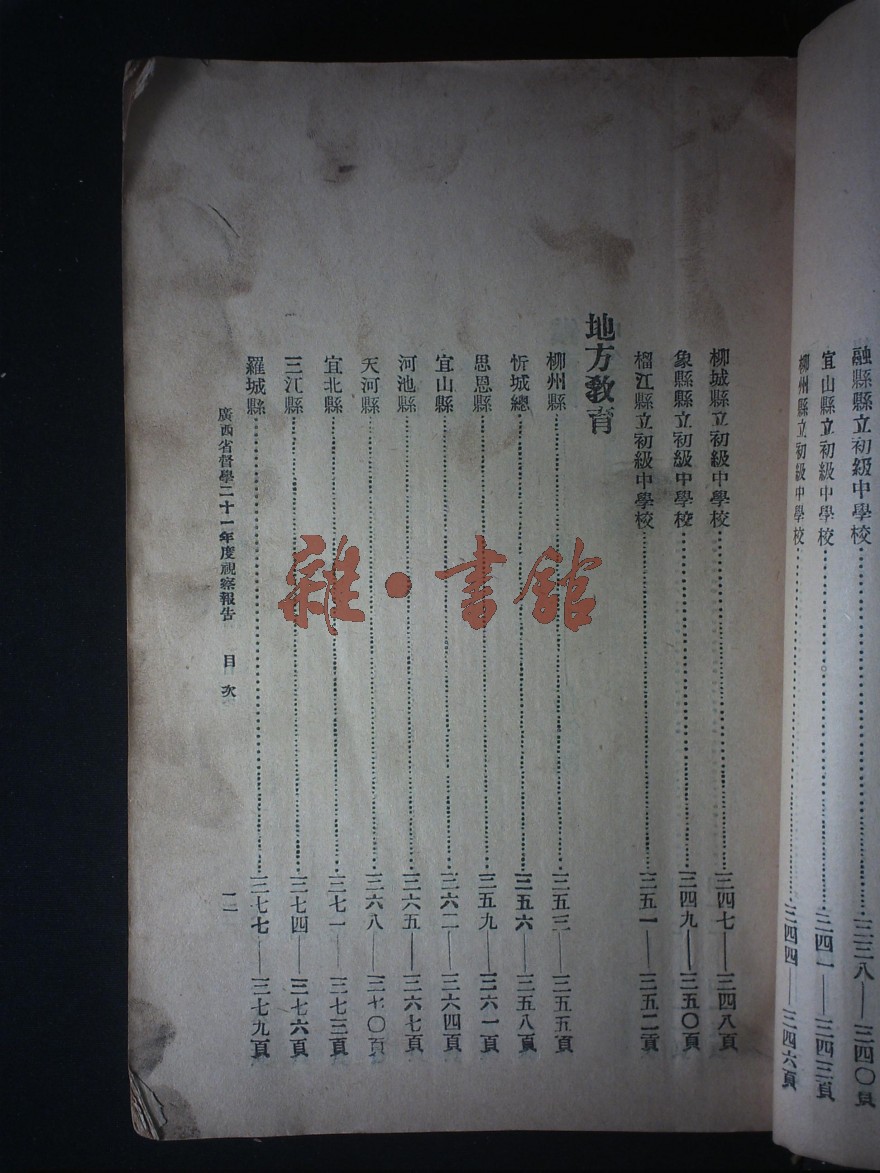 融縣縣立初級中學校……三三八—三四〇頁
宜山縣立初級中學校……三四一—三四三頁
柳州縣立初級中學校……三四四—三四六頁
柳城縣立初級中學校……三四七—三四八頁
象縣縣立初級中學校……三四九—三五〇頁
榴江縣立初級中學校……三五一—三五二頁
地方教育
柳州縣……三五三—三五五頁
忻城總……三五六—三五八頁
思恩縣……三五九—三六一頁
宜山縣……三六二—三六四頁
河池縣……三六五—三六七頁
天河縣……三六八—三七〇頁
宜北縣……三七一—三七三頁
三江縣……三七四—三七六頁
羅城縣……三七七—三七九頁
廣西省督學二十一年度視察報告 目次 一一
雜·書館